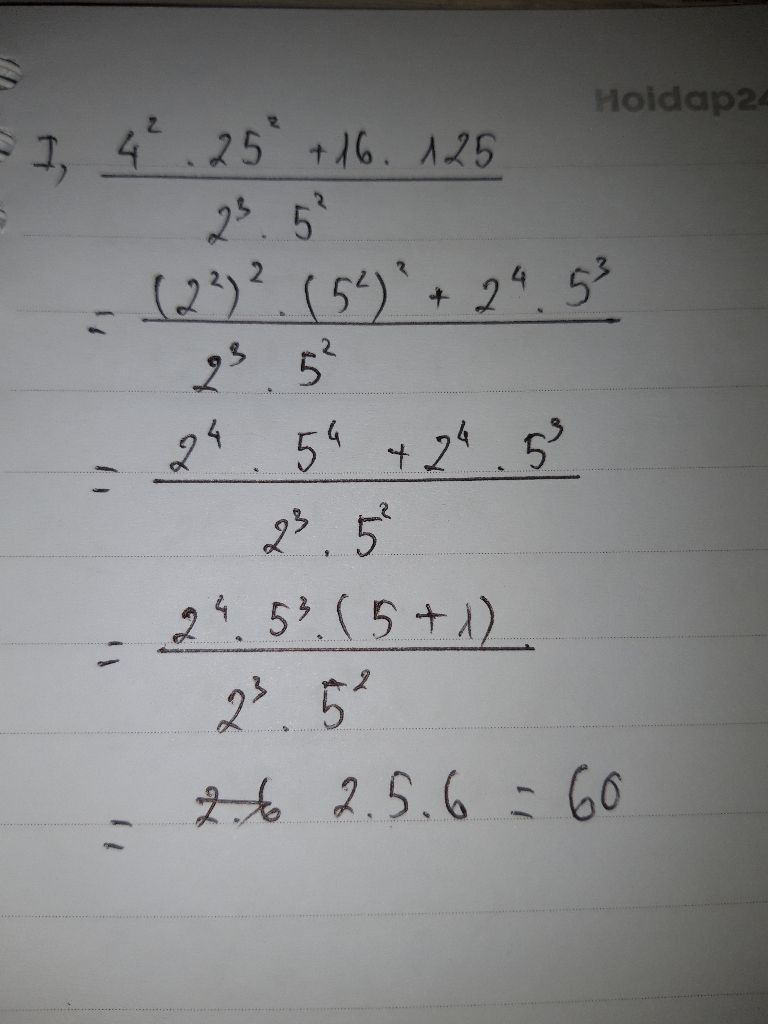 Hoidap24
I, 4² . 25² + 16 . 125
2³ . 5²
= (2²)² . (5²)² + 2⁴ . 5³
2³ . 5²
= 2⁴ . 5⁴ + 2⁴ . 5³
2³ . 5²
= 2⁴ . 5³ . (5 + 1)
2³ . 5²
= 2.6 2.5.6 = 60